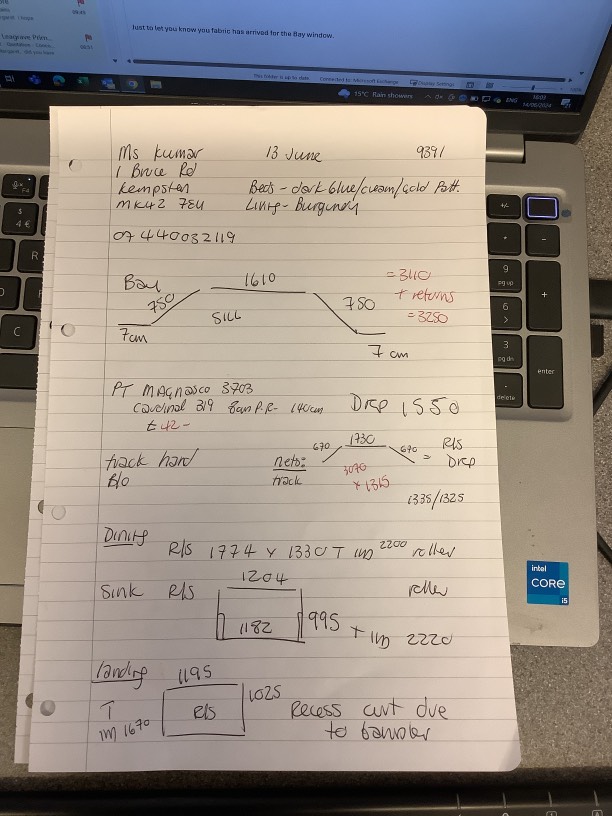 Just to let you know you fabric has arrived for the Bay window.
15°C Rain showers
ENG
14/06/2024
Ms Kumar 13 June 9391
1 Bruce Rd
Kempston Beds - dark blue/cream/gold Patt.
MK42 7EU Lining - Burgundy
07440032119
Bay 1610 = 3110
750 750 + returns
SILL = 3250
7cm 7cm
PT MAGNASCO 3703
Cardinal 319 P.R- 140cm Drop 1550
£42-
track hard nets: 670 1730 670 = R/S
B/O track 3070 Drop
x 1315
1335/1325
Dining R/S 1774 x 1330 T 2200 roller
Sink R/S 1204 roller
1182 995 + 2220
Landing 1195
T R/S 1025 Recess cut due
1670 to bannister
intel
CORE
i5
enter
delete